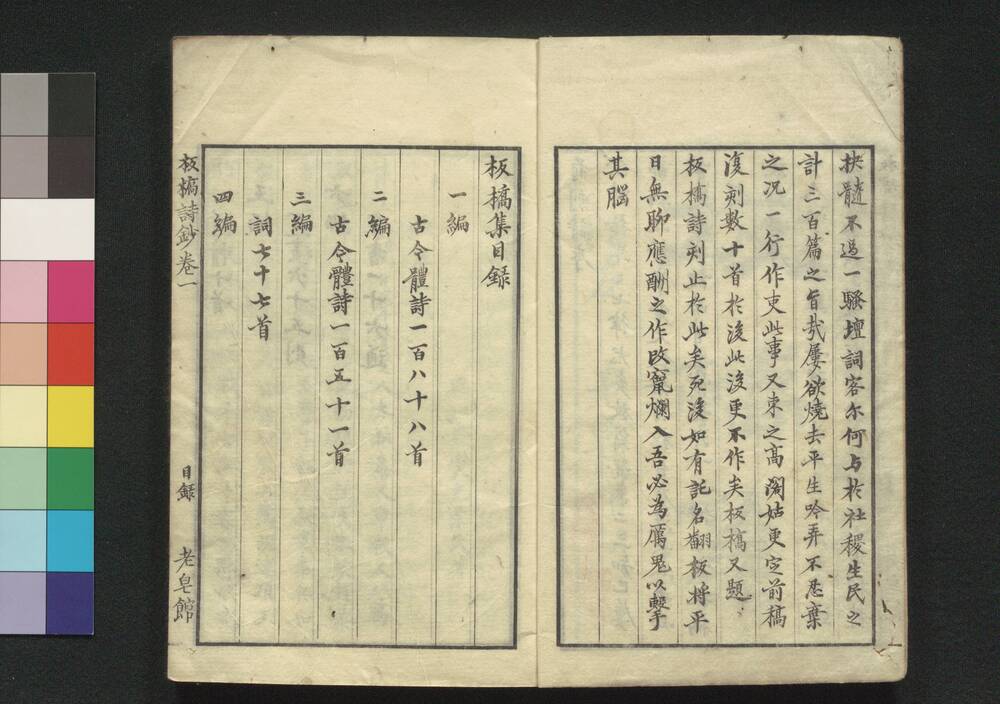 抉髓不過一騷壇詞客尔何与於社稷生民之
計三百篇之旨哉屢欲燒去平生吟弄不忍棄
之况一行作吏此事又束之高閣姑更定前稿
復刻數十首於後此後更不作矣板橋又題
板橋詩刻止於此矣死後如有託名翻板將平
日無聊應酬之作改竄爛入吾必為厲鬼以擊
其腦
板橋集目録
一編
古今體詩一百八十八首
二編
古今體詩一百五十一首
三編
詞七十七首
四編
板橋詩鈔卷一
目録
老皂館